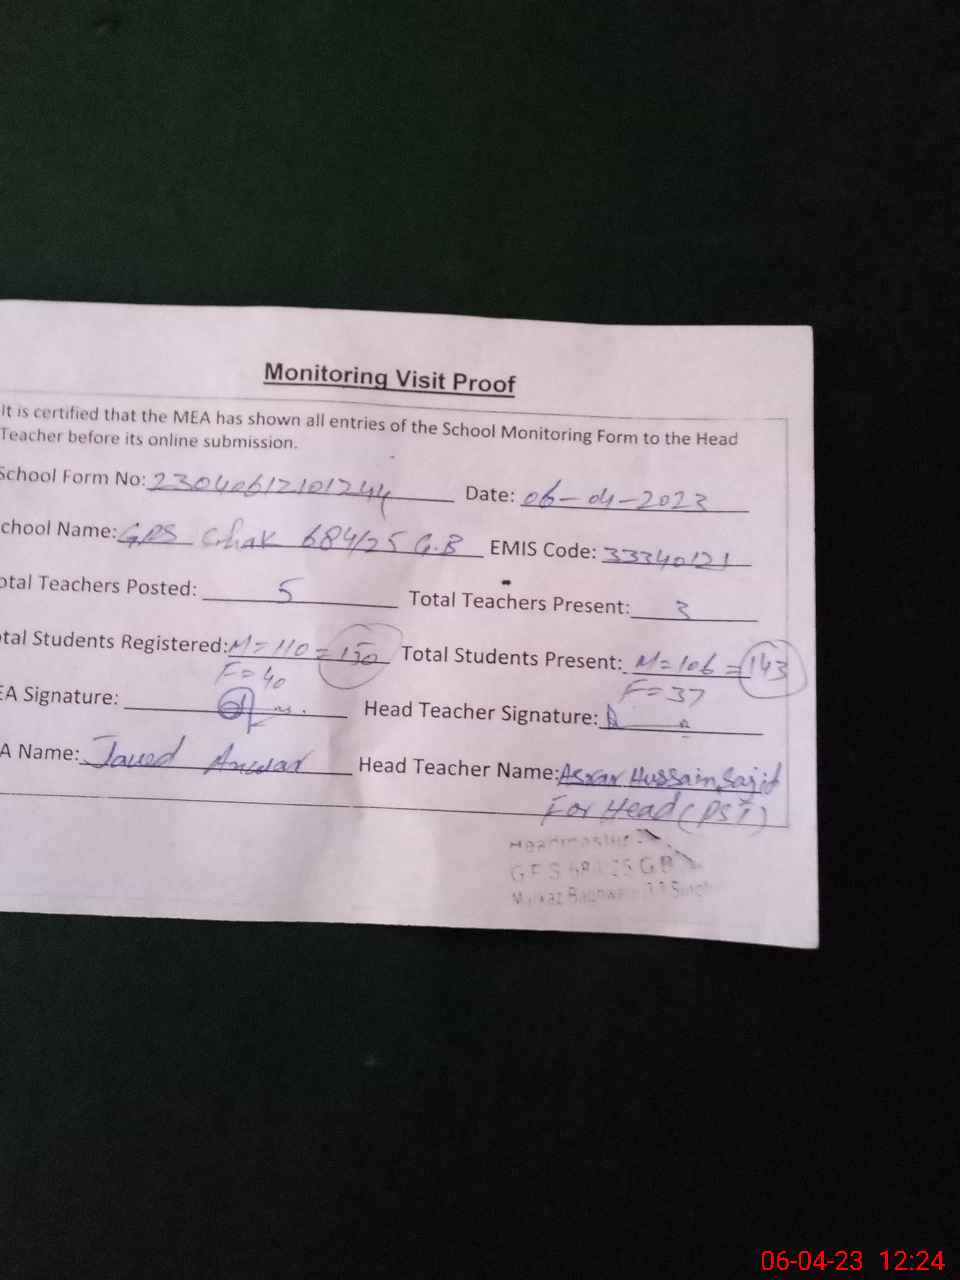 Monitoring Visit Proof
It is certified that the MEA has shown all entries of the School Monitoring Form to the Head
Teacher before its online submission.
School Form No: 23040612101244 Date: 06-04-2023
chool Name: GPS Chak 684/25 G.B EMIS Code: 33340121
otal Teachers Posted: 5 Total Teachers Present: 3
tal Students Registered: M=110 =150 Total Students Present: M=106 =143
F=40 F=37
EA Signature: Head Teacher Signature:
A Name: Javed Anwar Head Teacher Name: Asrar Hussain Sajid
For Head (PST)
Headmaster
25 GB
Markaz
06-04-23 12:24